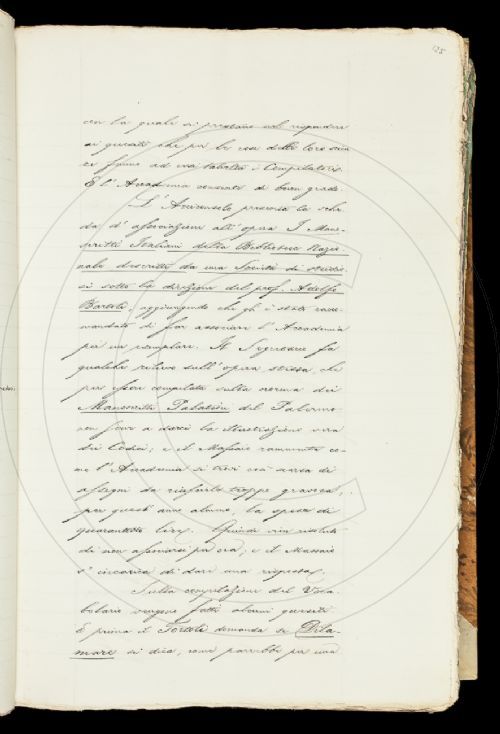 125
con la quale si pregano nel rispondere
ai quesiti che per le cose della loro scien
za furono ad essi talvolta i Compilatori.
E l'Accademia consente di buon grado.
L'Arciconsolo presenta la sche
da d'associazione all'opera I Mano
scritti Italiani della Biblioteca Nazio
nale descritti da una Società di studio
si sotto la direzione del prof. Adolfo
Bartoli, aggiungendo che gli è stato racco
mandato di far associare l'Accademia
per un esemplare. Il Segretario fa
qualche rilievo sull'opera stessa, che
può essere compilata sulla norma dei
Manoscritti Palatini del Palermo
non serve a darci la illustrazione vera
dei Codici; e il Massaio rammenta co
me l'Accademia si trovi così scarsa di
assegni da riuscirle troppo gravosa,
per quest'anno almeno, la spesa di
quarantotto lire. Quindi vien risoluto
di non associarsi per ora; e il Massaio
s'incarica di dare una risposta.
Sulla compilazione del Voca
bolario vengono fatti alcuni quesiti.
E prima il Tortoli domanda se Dila-
mare si dica, come parrebbe per una